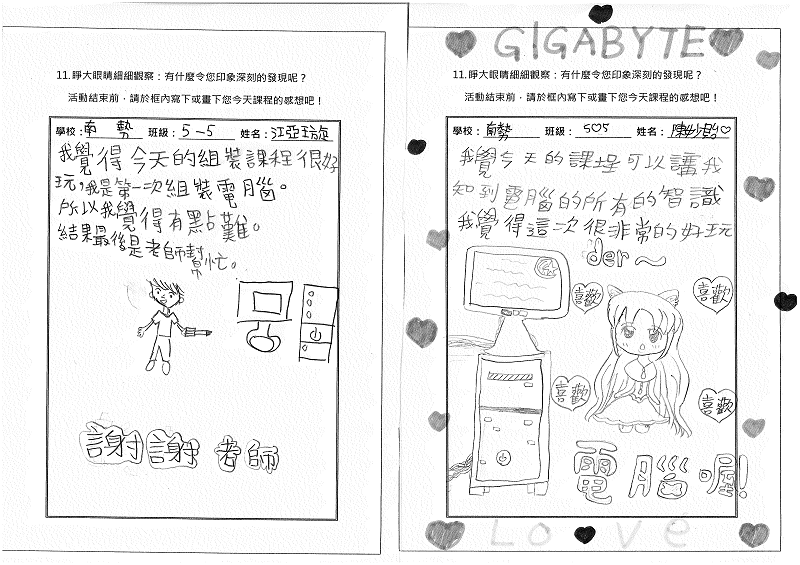 11.睜大眼睛細細觀察：有什麼令您印象深刻的發現呢？
活動結束前，請於框內寫下或畫下您今天課程的感想吧！
學校：南勢 班級：5-5 姓名：江亞璇
我覺得今天的組裝課程很好
玩，我是第一次組裝電腦。
所以我覺得有點難。
結果最後是老師幫忙。
謝謝老師
GIGABYTE
11.睜大眼睛細細觀察：有什麼令您印象深刻的發現呢？
活動結束前，請於框內寫下或畫下您今天課程的感想吧！
學校：南勢 班級：505 姓名：陳妙
我覺今天的課程可以讓我
知到電腦的所有的智識
我覺得這次很非常的好玩
der～
喜歡
喜歡
喜歡
喜歡
電腦喔!
Love